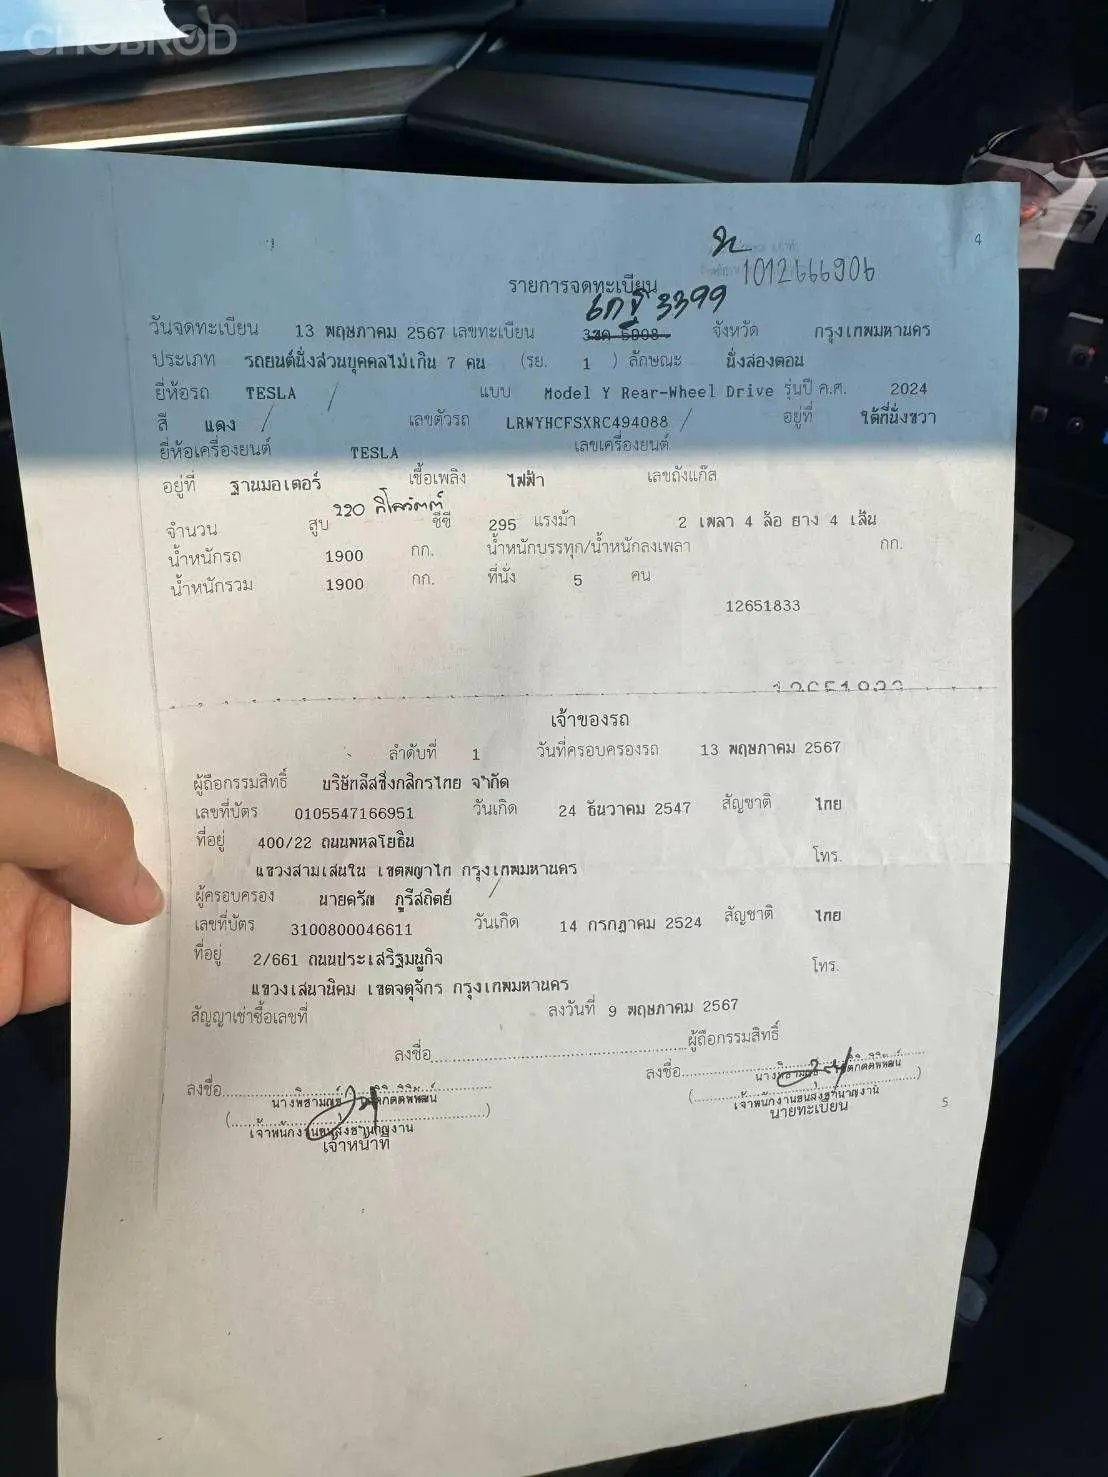 CHOBROD
4
1012666906
รายการจดทะเบียน
3399
วันจดทะเบียน 13 พฤษภาคม 2567 เลขทะเบียน จังหวัด กรุงเทพมหานคร
ประเภท รถยนต์นั่งส่วนบุคคลไม่เกิน 7 คน (รย. 1 ) ลักษณะ นั่งสองตอน
ยี่ห้อรถ TESLA แบบ Model Y Rear-Wheel Drive รุ่นปี ค.ศ. 2024
สี แดง เลขตัวรถ LRWYHCFSXRC494088 อยู่ที่ ใต้ที่นั่งขวา
ยี่ห้อเครื่องยนต์ TESLA เลขเครื่องยนต์
อยู่ที่ ฐานมอเตอร์ เชื้อเพลิง ไฟฟ้า เลขถังแก๊ส
220 กิโลวัตต์
จำนวน สูบ ซีซี 295 แรงม้า 2 เพลา 4 ล้อ ยาง 4 เส้น
น้ำหนักรถ 1900 กก. น้ำหนักบรรทุก/น้ำหนักลงเพลา กก.
น้ำหนักรวม 1900 กก. ที่นั่ง 5 คน
12651833
เจ้าของรถ
ลำดับที่ 1 วันที่ครอบครองรถ 13 พฤษภาคม 2567
ผู้ถือกรรมสิทธิ์ บริษัทลีสซิ่งกสิกรไทย จำกัด
เลขที่บัตร 0105547166951 วันเกิด 24 ธันวาคม 2547 สัญชาติ ไทย
ที่อยู่ 400/22 ถนนพหลโยธิน
แขวงสามเสนใน เขตพญาไท กรุงเทพมหานคร โทร.
ผู้ครอบครอง นายดรัณ ภูรีสถิตย์
เลขที่บัตร 3100800046611 วันเกิด 14 กรกฎาคม 2524 สัญชาติ ไทย
ที่อยู่ 2/661 ถนนประเสริฐมนูกิจ
แขวงเสนานิคม เขตจตุจักร กรุงเทพมหานคร โทร.
สัญญาเช่าซื้อเลขที่ ลงวันที่ 9 พฤษภาคม 2567
ลงชื่อ ผู้ถือกรรมสิทธิ์
ลงชื่อ ลงชื่อ
เจ้าพนักงานขนส่งชำนาญงาน เจ้าพนักงานขนส่งชำนาญงาน
เจ้าหน้าที่ นายทะเบียน
5